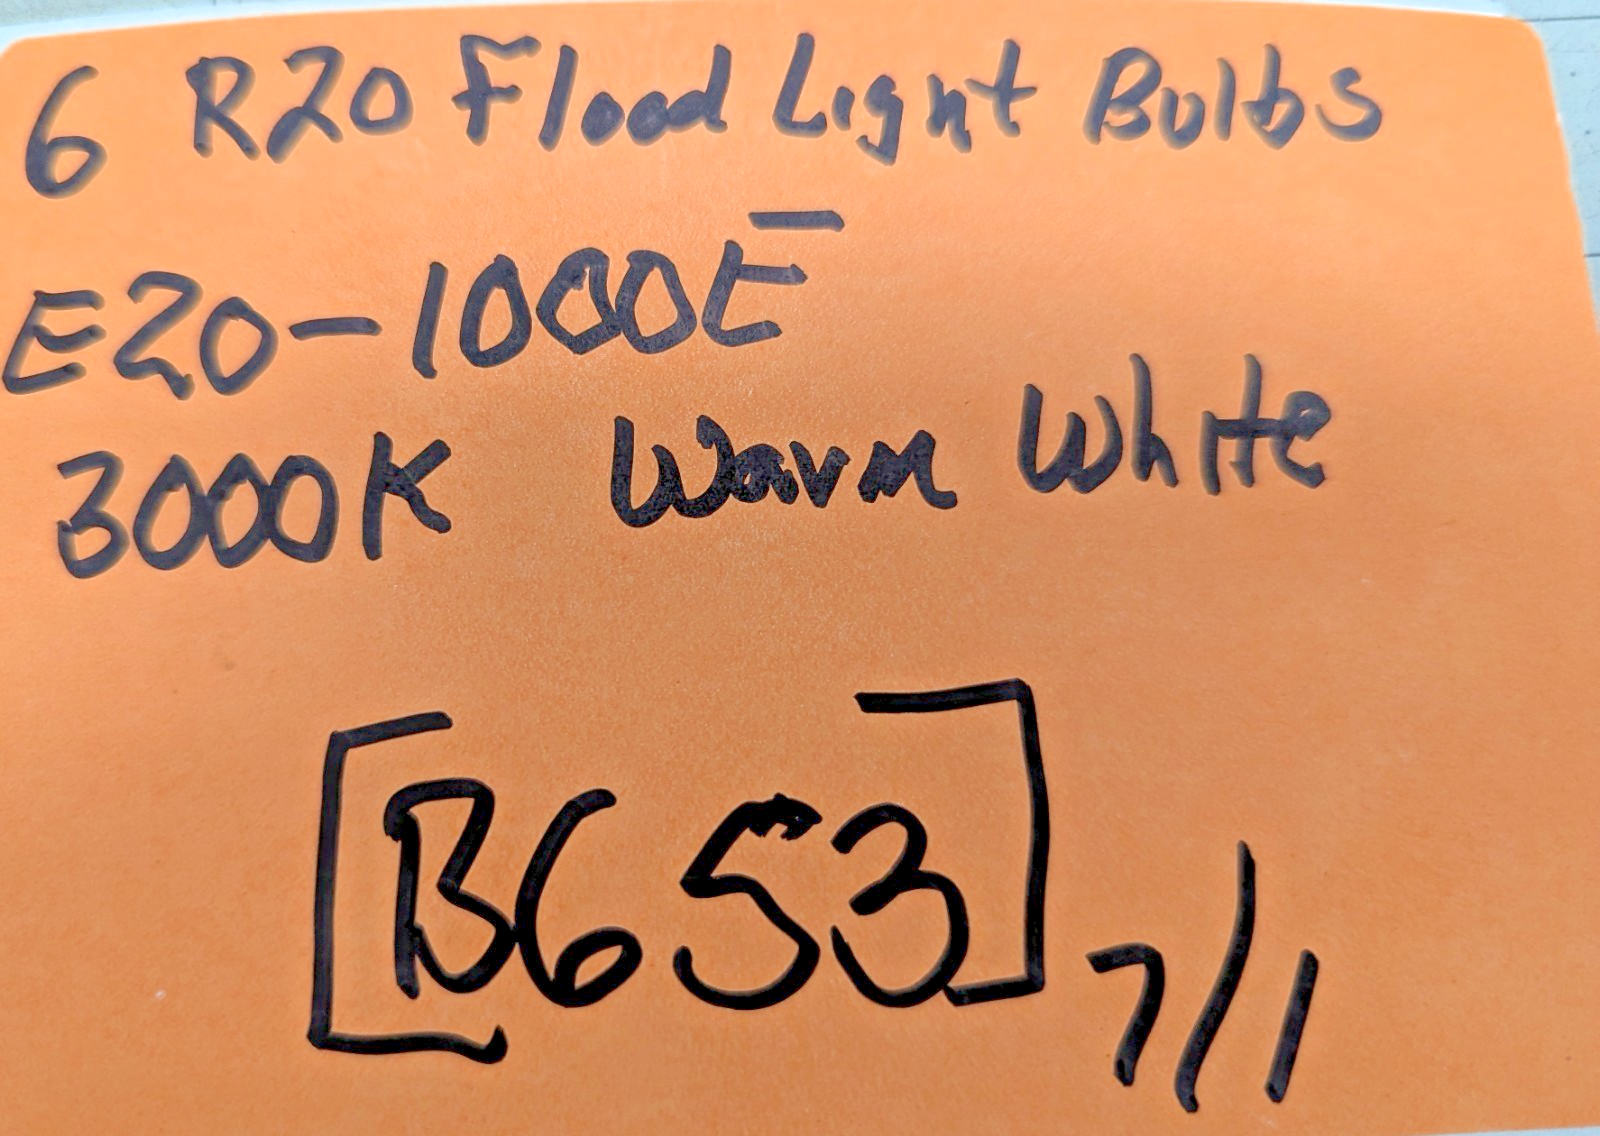 6 R20 Flood Light Bulbs
E20-1000E
3000K Warm White
[B653] 7/1